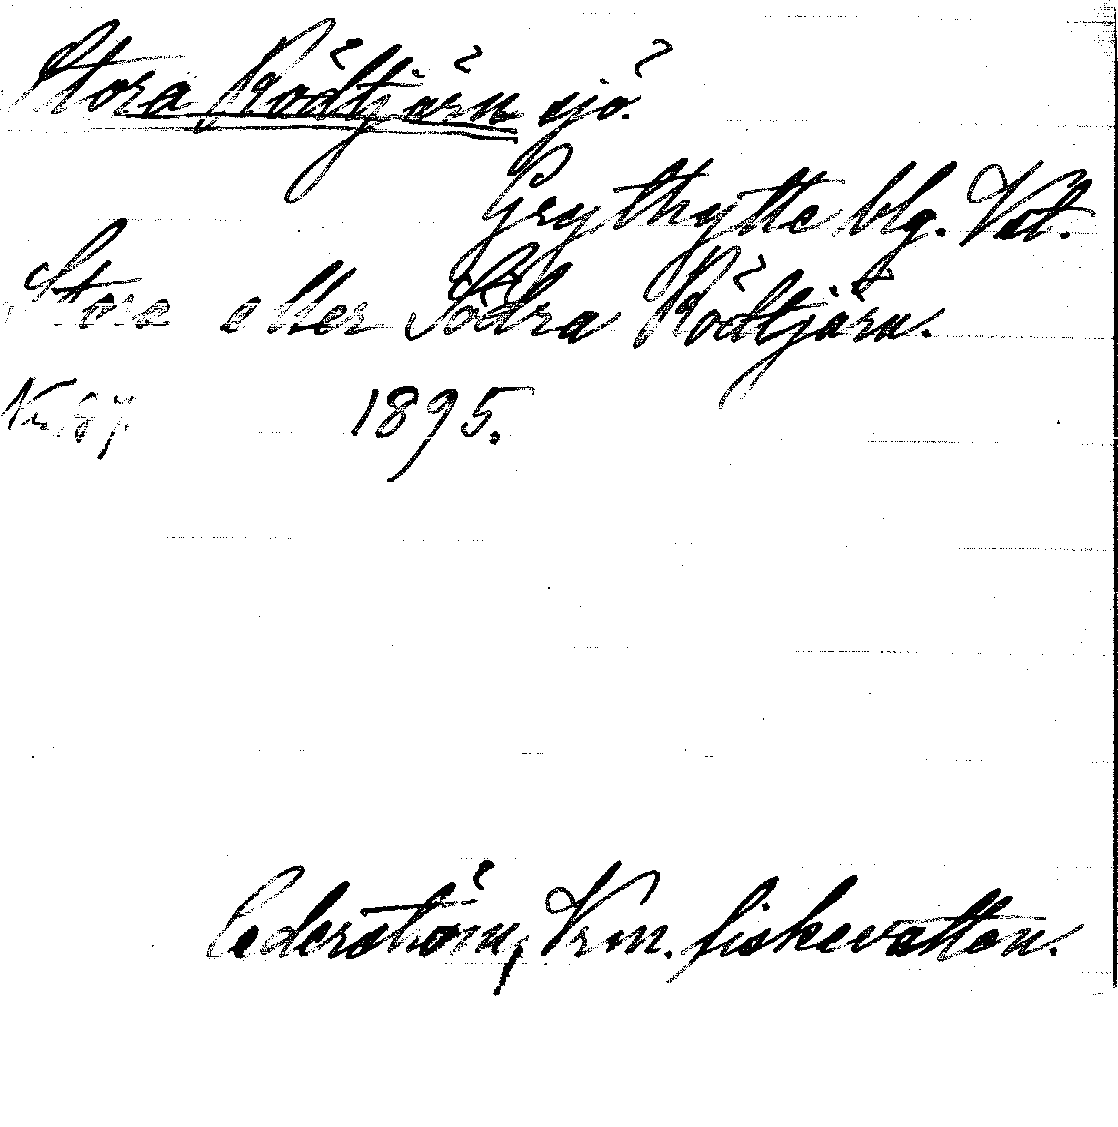 Stora Rödtjärn sjö.
Grythytte blg. Vstl.
Stora eller Södra Rödtjärn.
No 87. 1895.
Cederström, Vrm. fiskevatten.